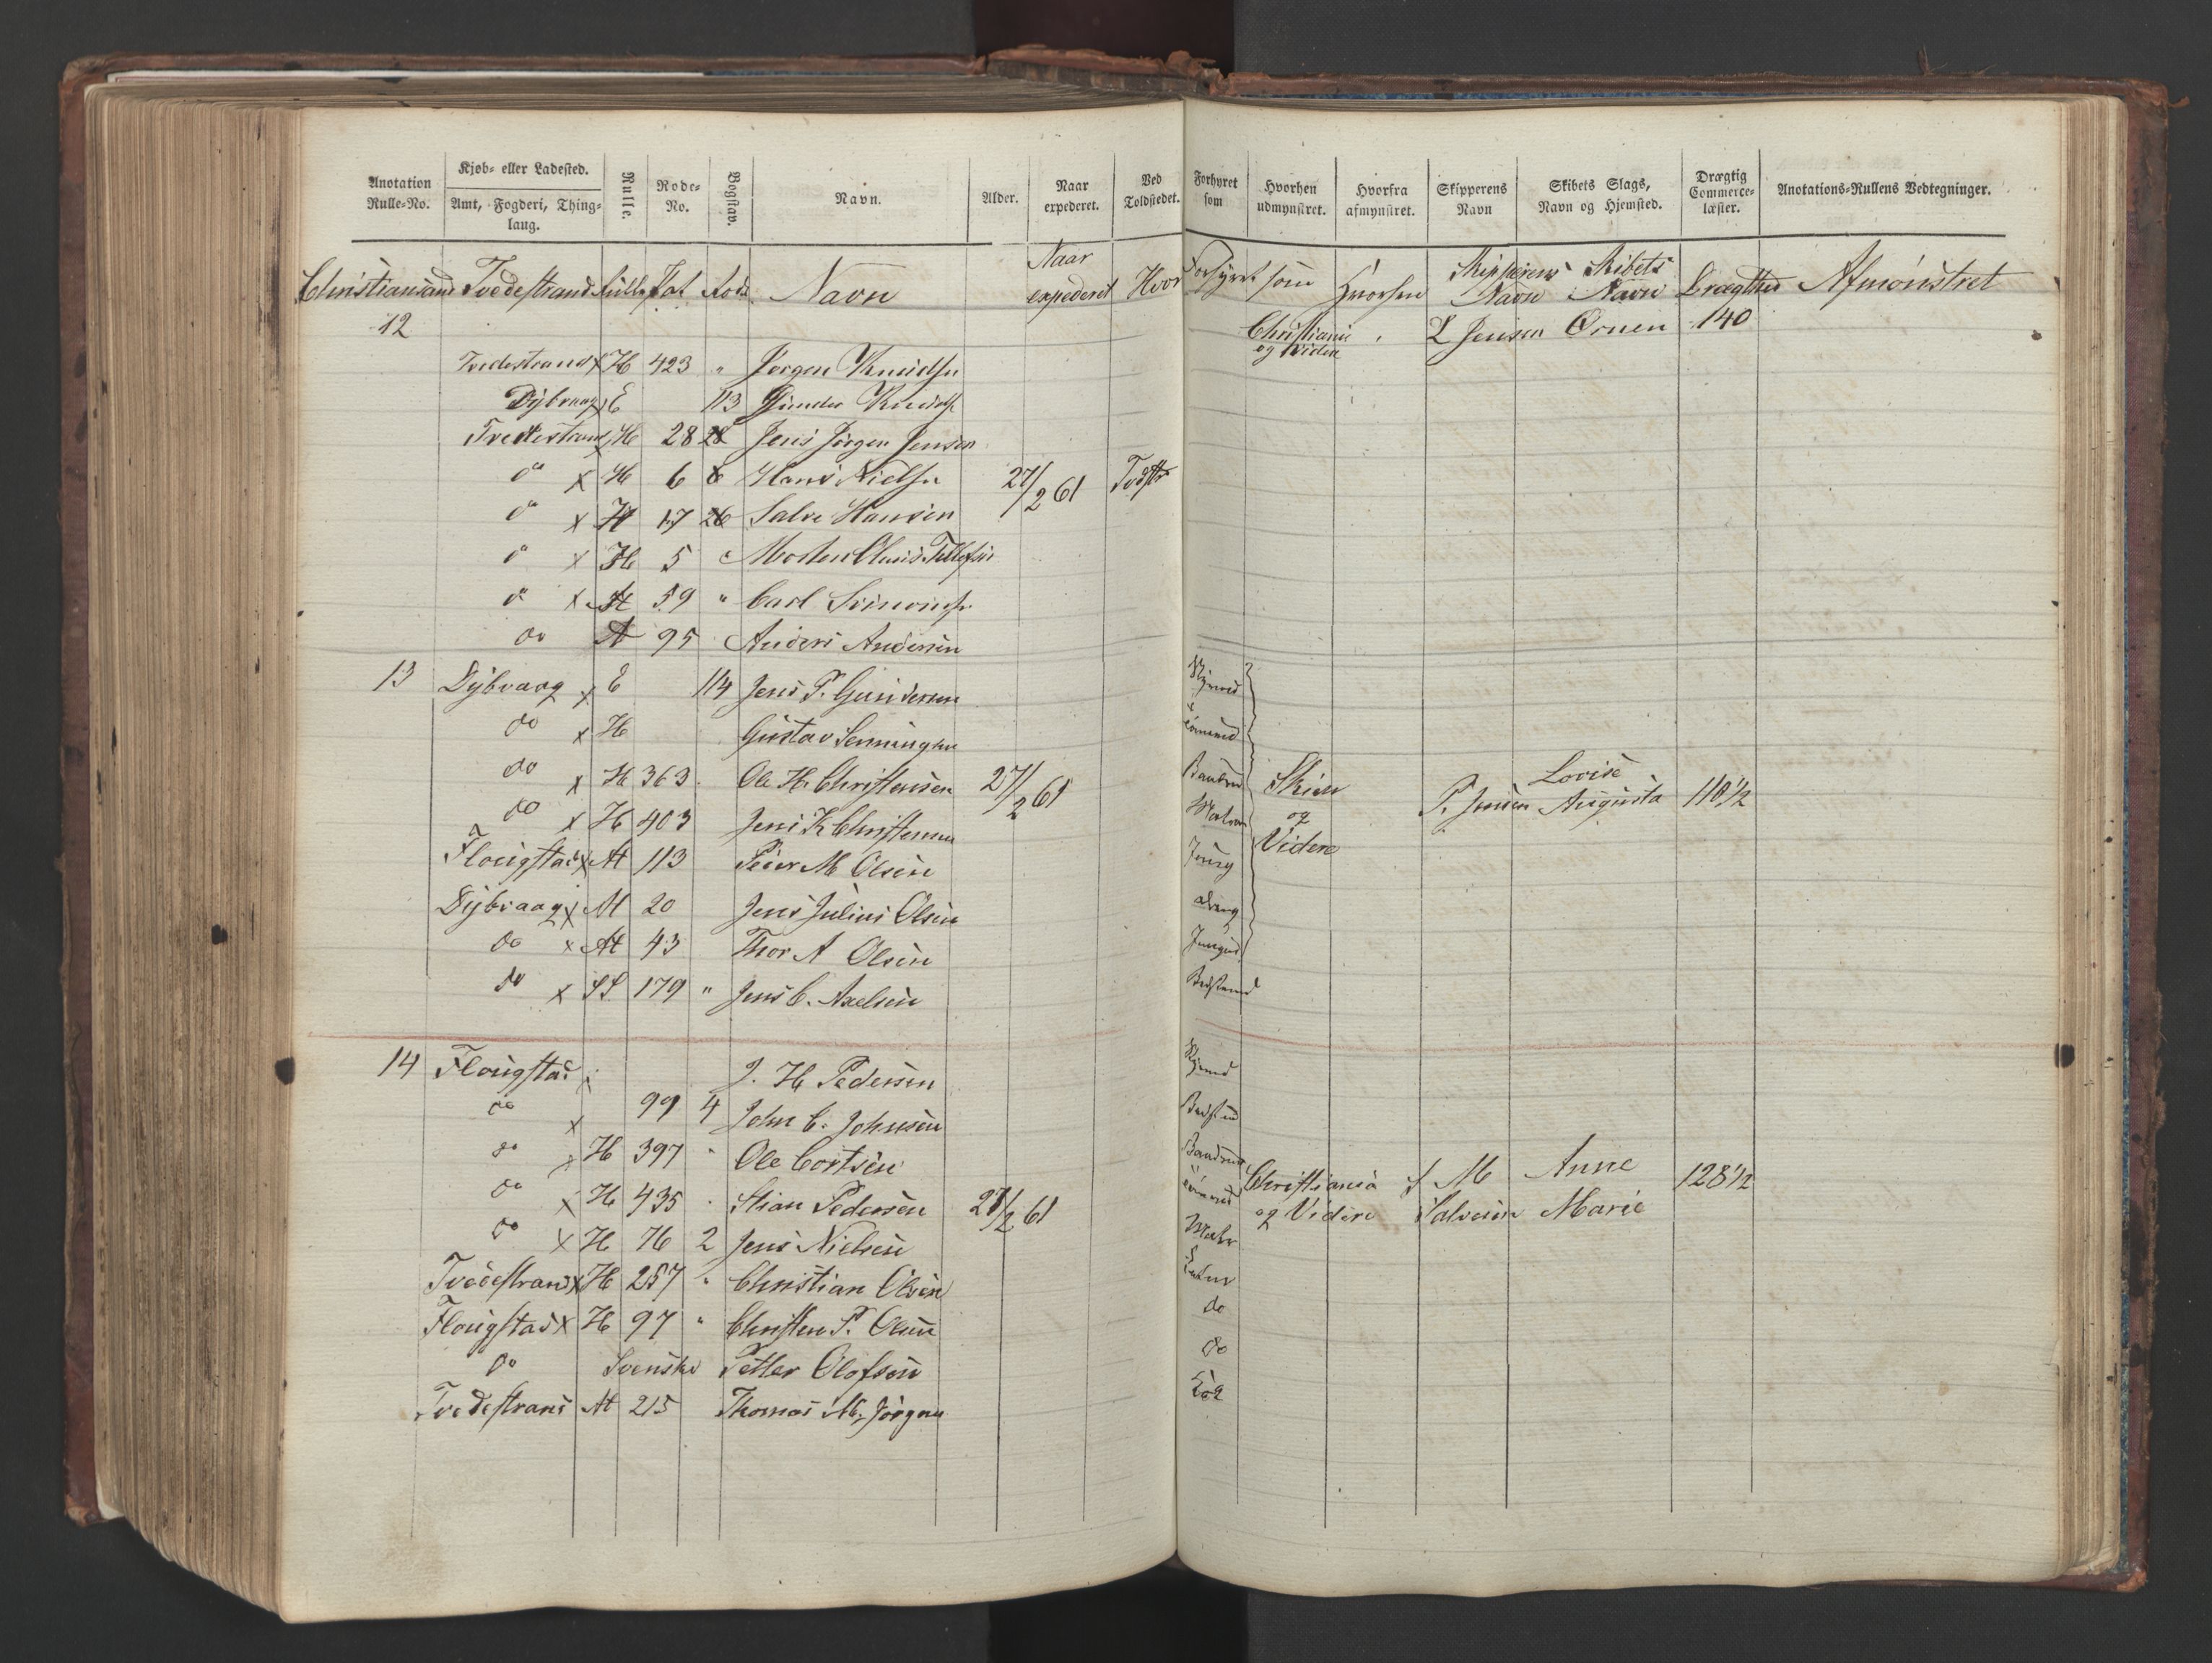 Anotation Rulle-No. Kjøb- eller Ladested. Amt, Fogderi, Thinglaug. Rulle. Rode-No. Bogstav. Navn. Alder. Naar expederet. Ved Toldstedet. Forhyret som Hvorhen udmynstret. Hvorfra afmynstret. Skipperens Navn Skibets Slags, Navn og Hjemsted. Drægtig Commerce-læster. Anotations-Rullens Vedtegninger.
Christiansand Tvedestrand Rulle Tal Rode Navn Naar expederet Hvor Forhyret som Hvorhen Skipperens Navn Skibets Navn Drægthed Afmönstret
12 Christiania og videre L Jensen Ornen 140
Tvedestrand x H 423 " Jørgen Knudsn
Dybvaag x E 113 Gunder Knuds
Tvedestrand x H 28 28 Jens Jörgen Jensen
do x H 6 6 Hans Nielsn 27/2 61 Tvdstr
do x H 17 26 Salve Hansen
do x H 5 Morten Olaus Tellefsn
do x H 59 " Carl
do A 95 Anders Andersen
13 Dybvaag x E 114 Jens P. Gundersen
do x H Gustav
do x H 363 Ole H. Christensen 27/2 61 Skien og Videre P. Jensen Lovise Augusta 110 1/2
do x H 403 Jens K Christensen
Flougstad x At 113 Peder M Olsen Jung
Dybvaag x M 20 Jens Julius Olsen Dreng
do x At 43 Thor A Olsen
do x SS 179 " Jens C. Axelsen
14 Flougstad J. H. Pedersen
do x 99 4 John C. Johnsen
do x H 397 " Ole Cortsen
do x H 435 Stian Pedersen 27/2 61 Christiania og Videre S M Salvesen Anne Marie 128 1/2
do x H 76 2 Jens Nielsen
Tvedestrand x H 257 " Christian Olsen
Flougstad x H 97 " Christen P. Olsen do
do Svensker Petter Olofsen do
Tvedestrand At 215 Thomas M. Jörgens